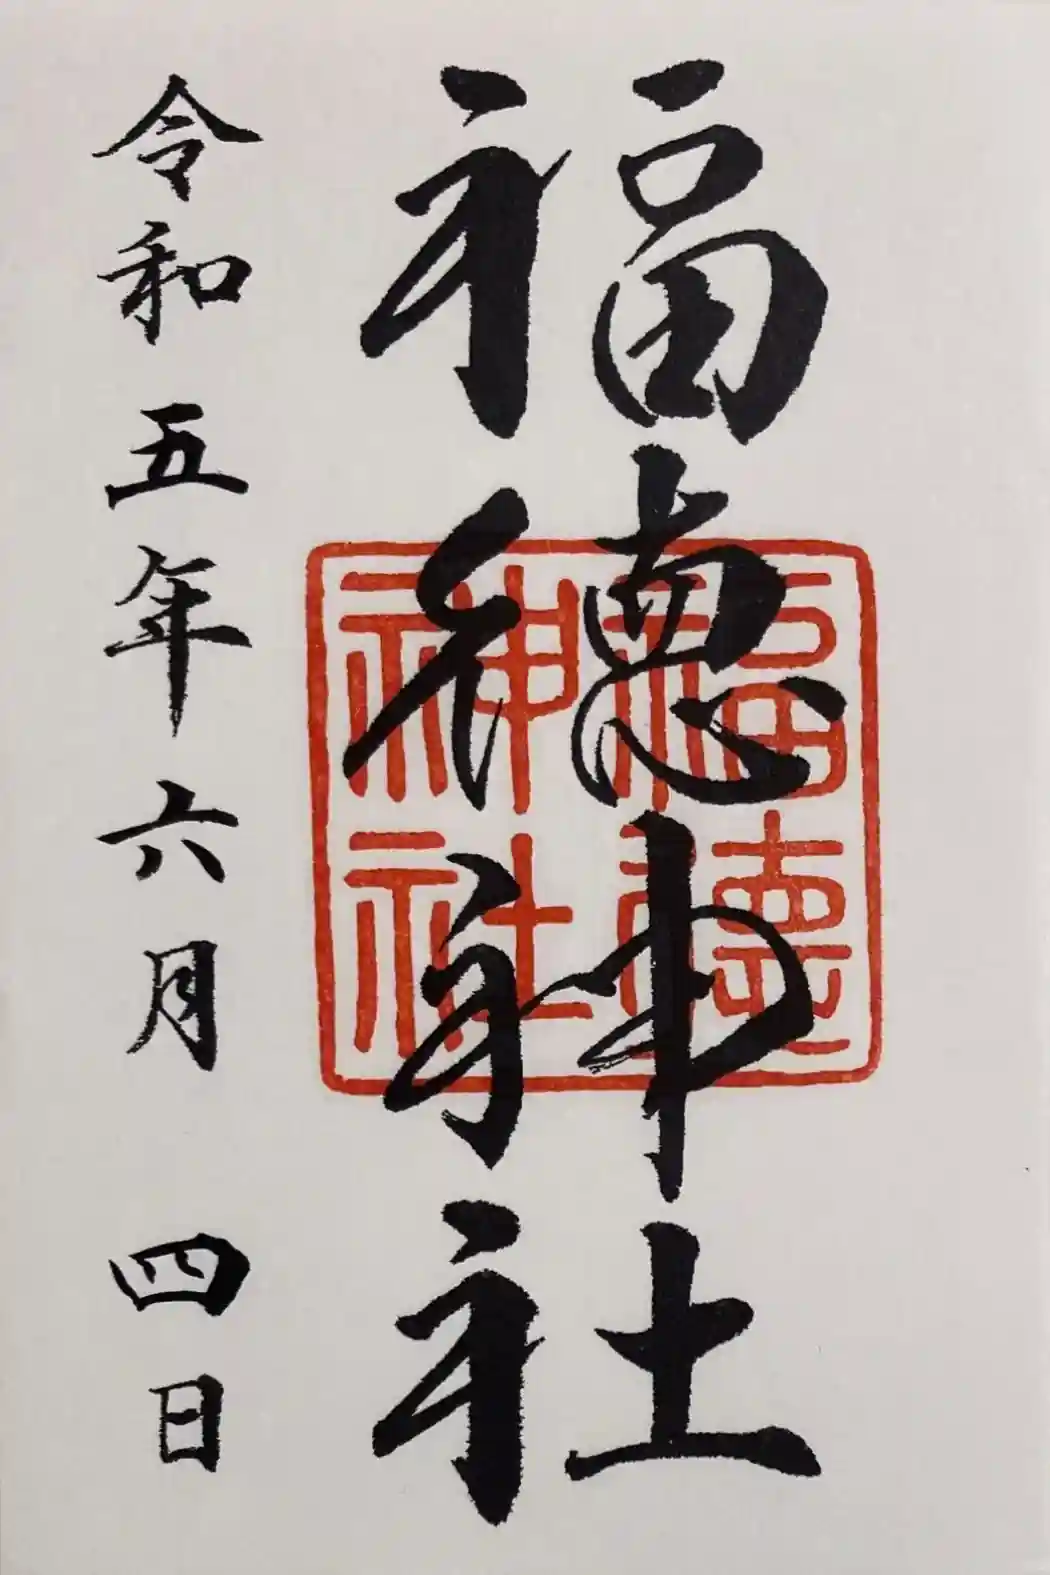 福徳神社
福徳
神社
令和五年六月四日